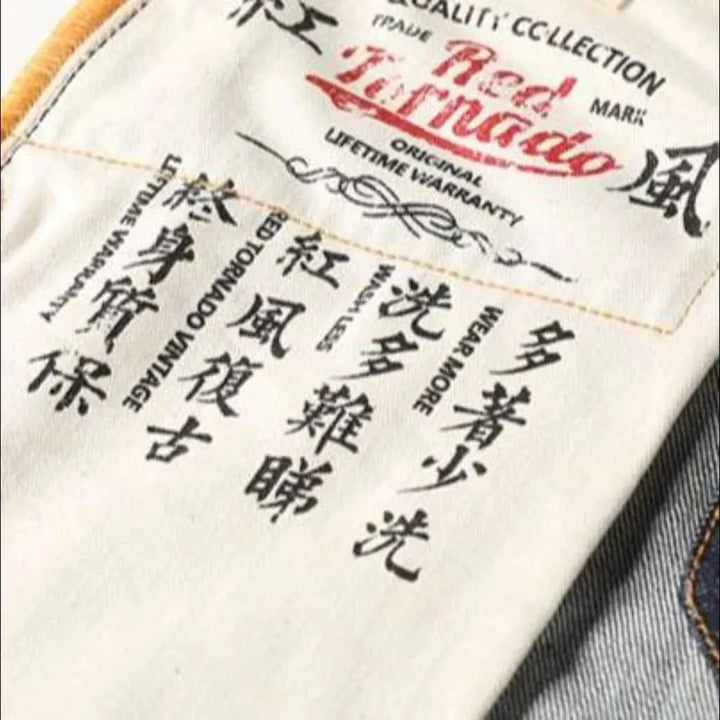 QUALITY COLLECTION
紅
TRADE
Red
Tornado
MARK
風
ORIGINAL
LIFETIME WARRANTY
多著少洗
WEAR MORE
洗多難睇
WASH LESS
紅風復古
RED TORNADO VINTAGE
終身質保
LIFETIME WARRANTY